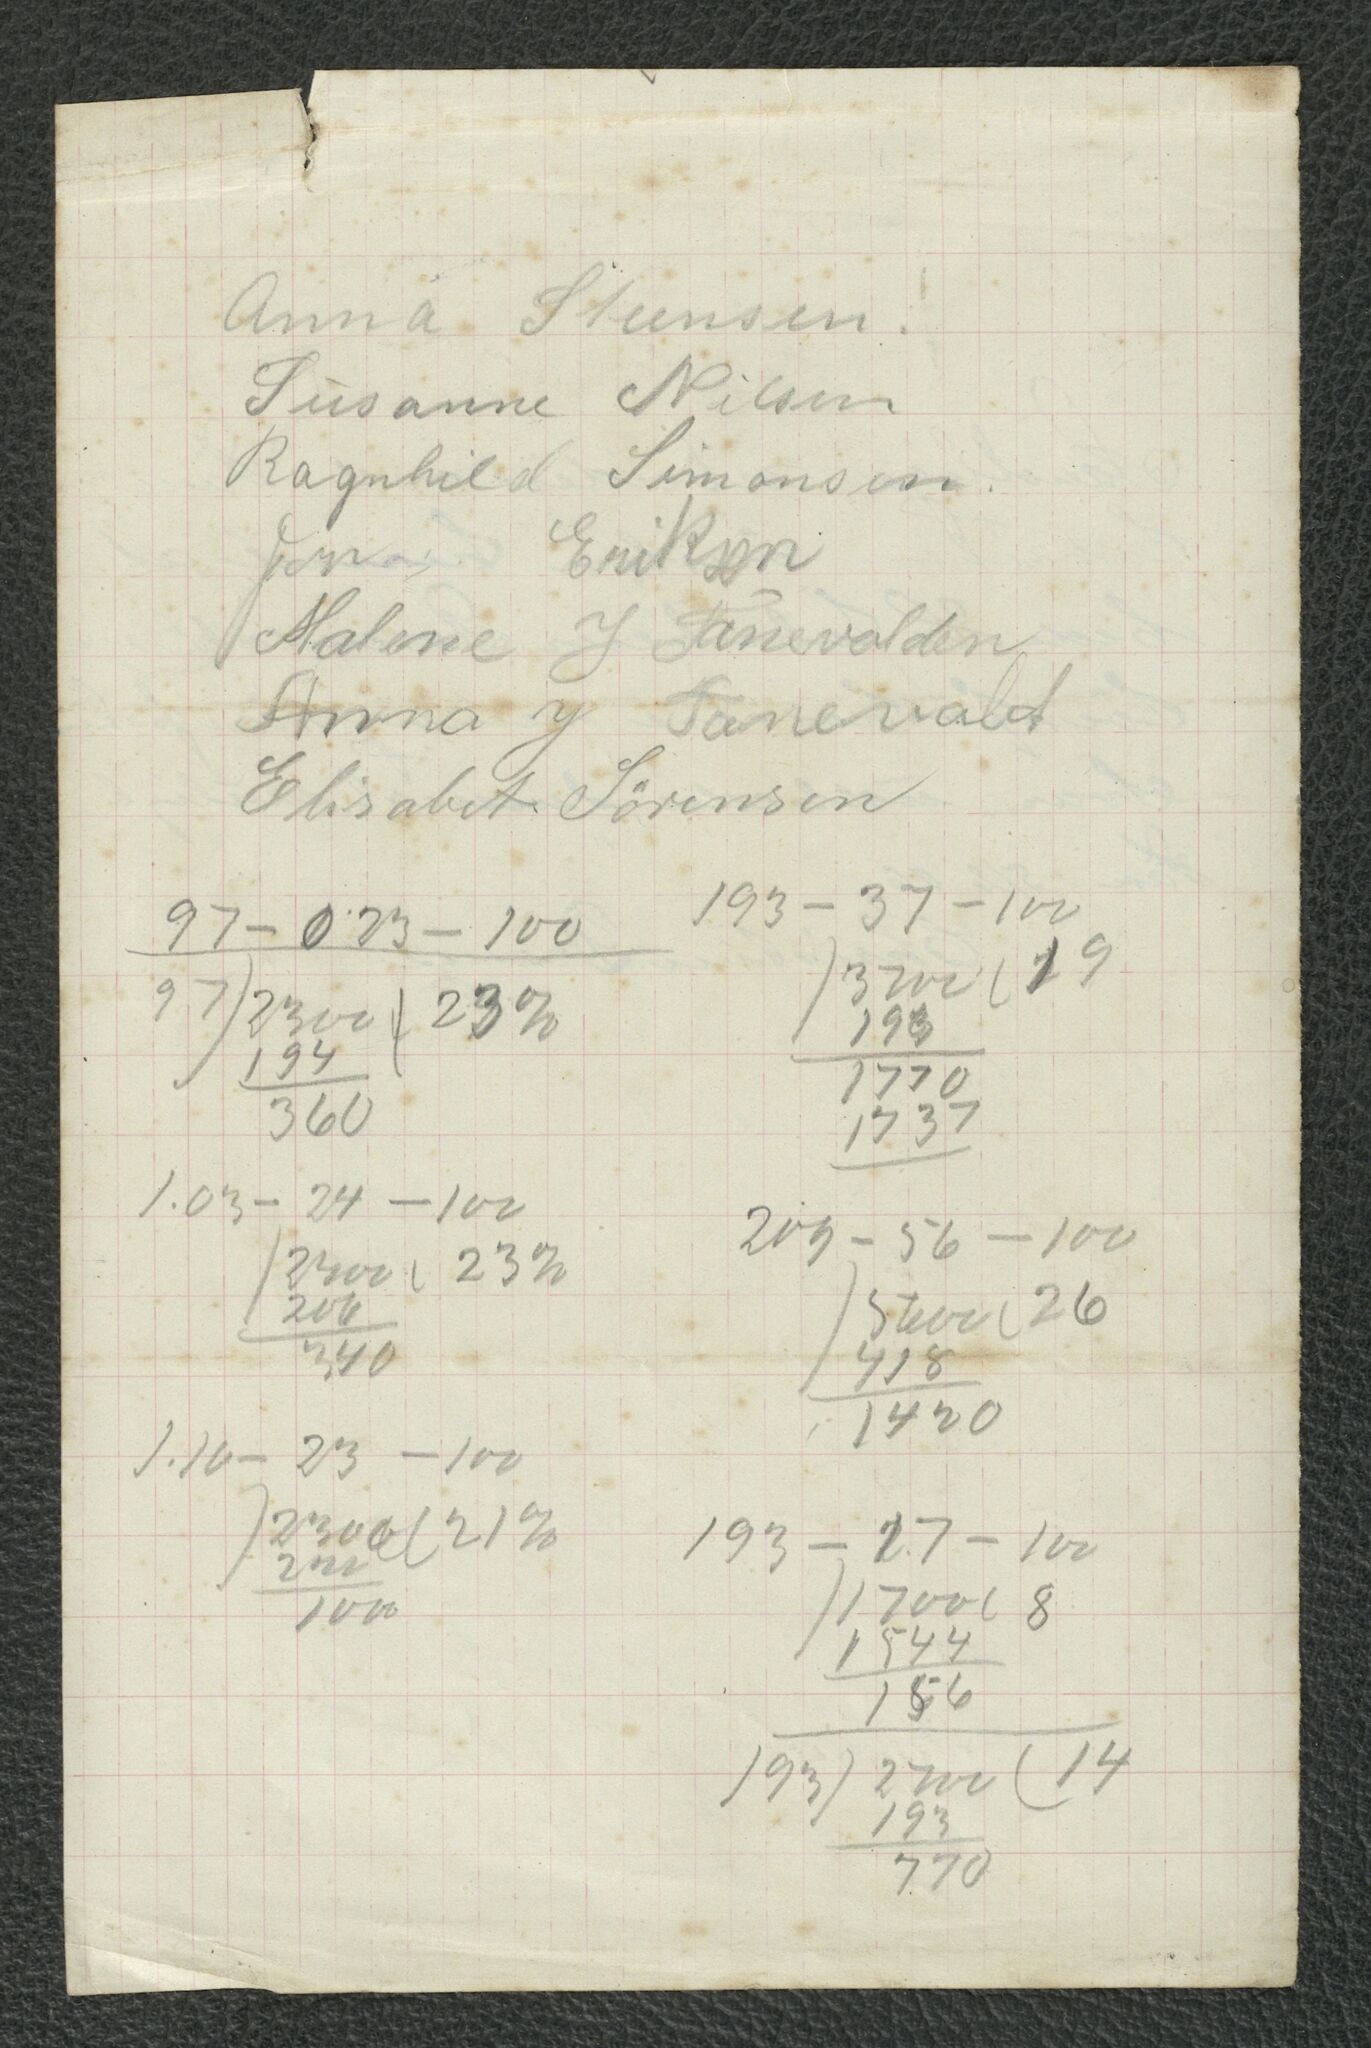 Anna Steensen.
Susanne Nilsen
Ragnhild Simonsen.
Erikson
Malene J Fanevolden
Anna J Fanevold
Elisabet Sörensen
97 - 0.23 - 100
97)2300(23%
194
360
1.03 - 24 - 100
)2400(23%
206
340
1.10 - 23 - 100
)2300(21%
220
100
193 - 37 - 100
)3700(19
193
1770
1737
209 - 56 - 100
)5600(26
418
1420
193 - 27 - 100
)1700(8
1544
156
193)2700(14
193
770